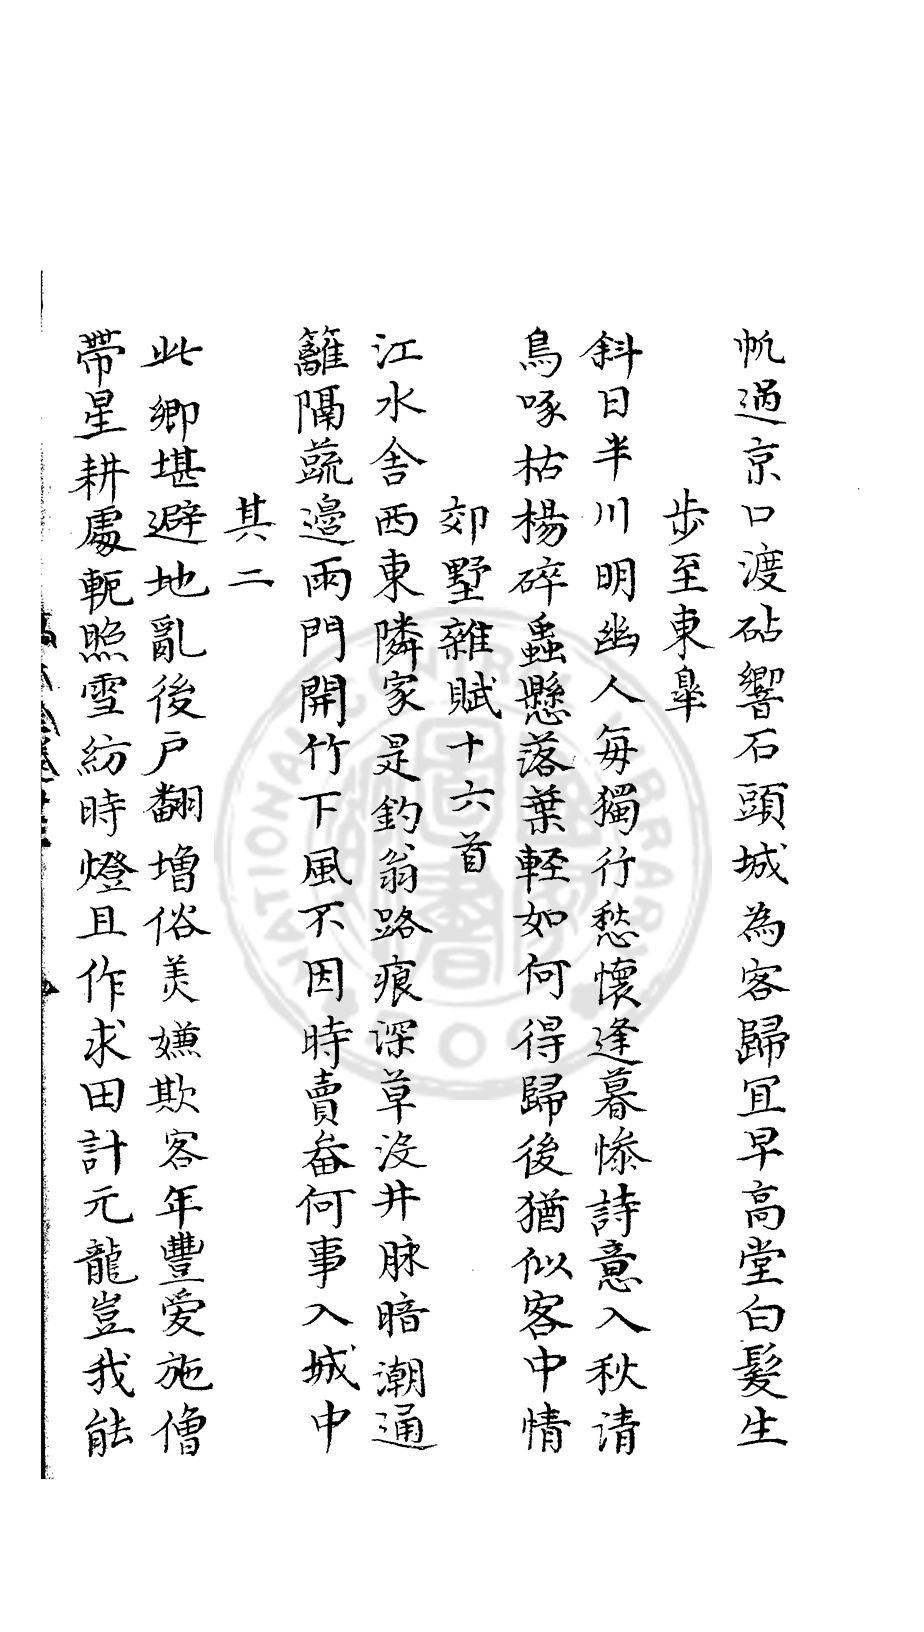 帆過京口渡砧響石頭城為客歸宜早高堂白髮生
步至東臯
斜日半川明幽人每獨行愁懷逢暮慘詩意入秋请
鳥啄枯楊碎蟲懸落葉軽如何得歸後猶似客中情
郊墅雜賦十六首
江水舍西東隣家是釣翁路痕深草没井脉暗潮通
籬隔蔬邉兩門開竹下風不因時賣畚何事入城中
其二
此鄉堪避地亂後户翻增俗美嫌欺客年豐爱施僧
帶星耕處軛照雪紡時燈且作求田計元龍豈我能